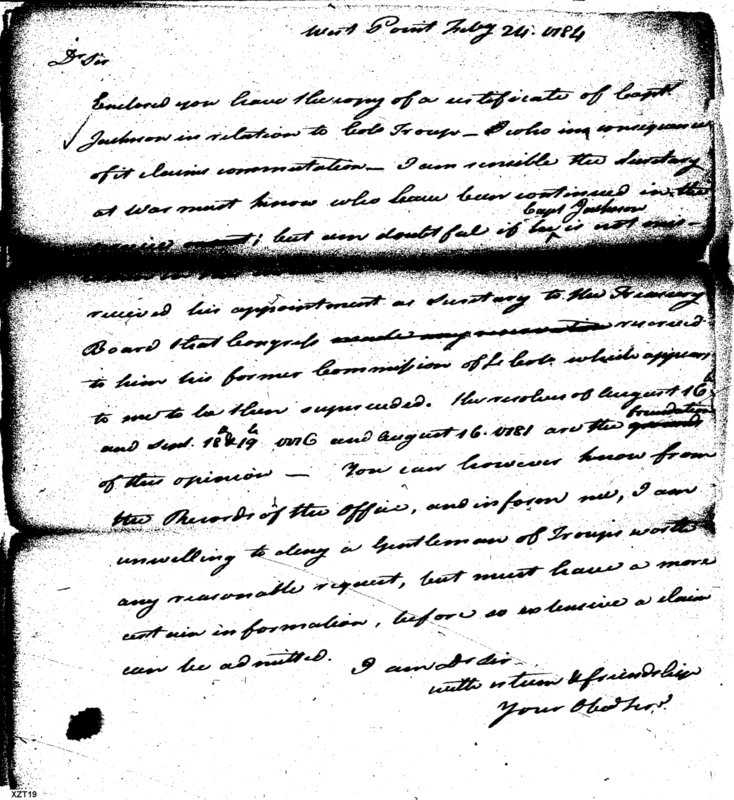 West Point Feby 24. 1784
Dr Sir
Enclosed you have the copy of a certificate of Capt
Jackson in relation to Colo Troup — who in consequence
of it claims commutation — I am sensible the Secretary
at War must know who have been continued in the
Capt Jackson
service ; but am doubtful if he is not mis-
received his appointment as Secretary to the Treasury
Board that Congress made any reservation reserved
to him his former Commission of Lt Colo. which appears
to me to be then superceeded. The resolves of August 16th
foundation
and Sept. 18th & 19th 1776 and August 16. 1781 are the ground
of this opinion — You can however know from
the Records of the Office, and inform me, I am
unwilling to deny a Gentleman of Troups worth
any reasonable request, but must have a more
certain information, before so extensive a claim
can be admitted. I am Dr Sir
with esteem & friendship
Your Obed Servt
XZT19